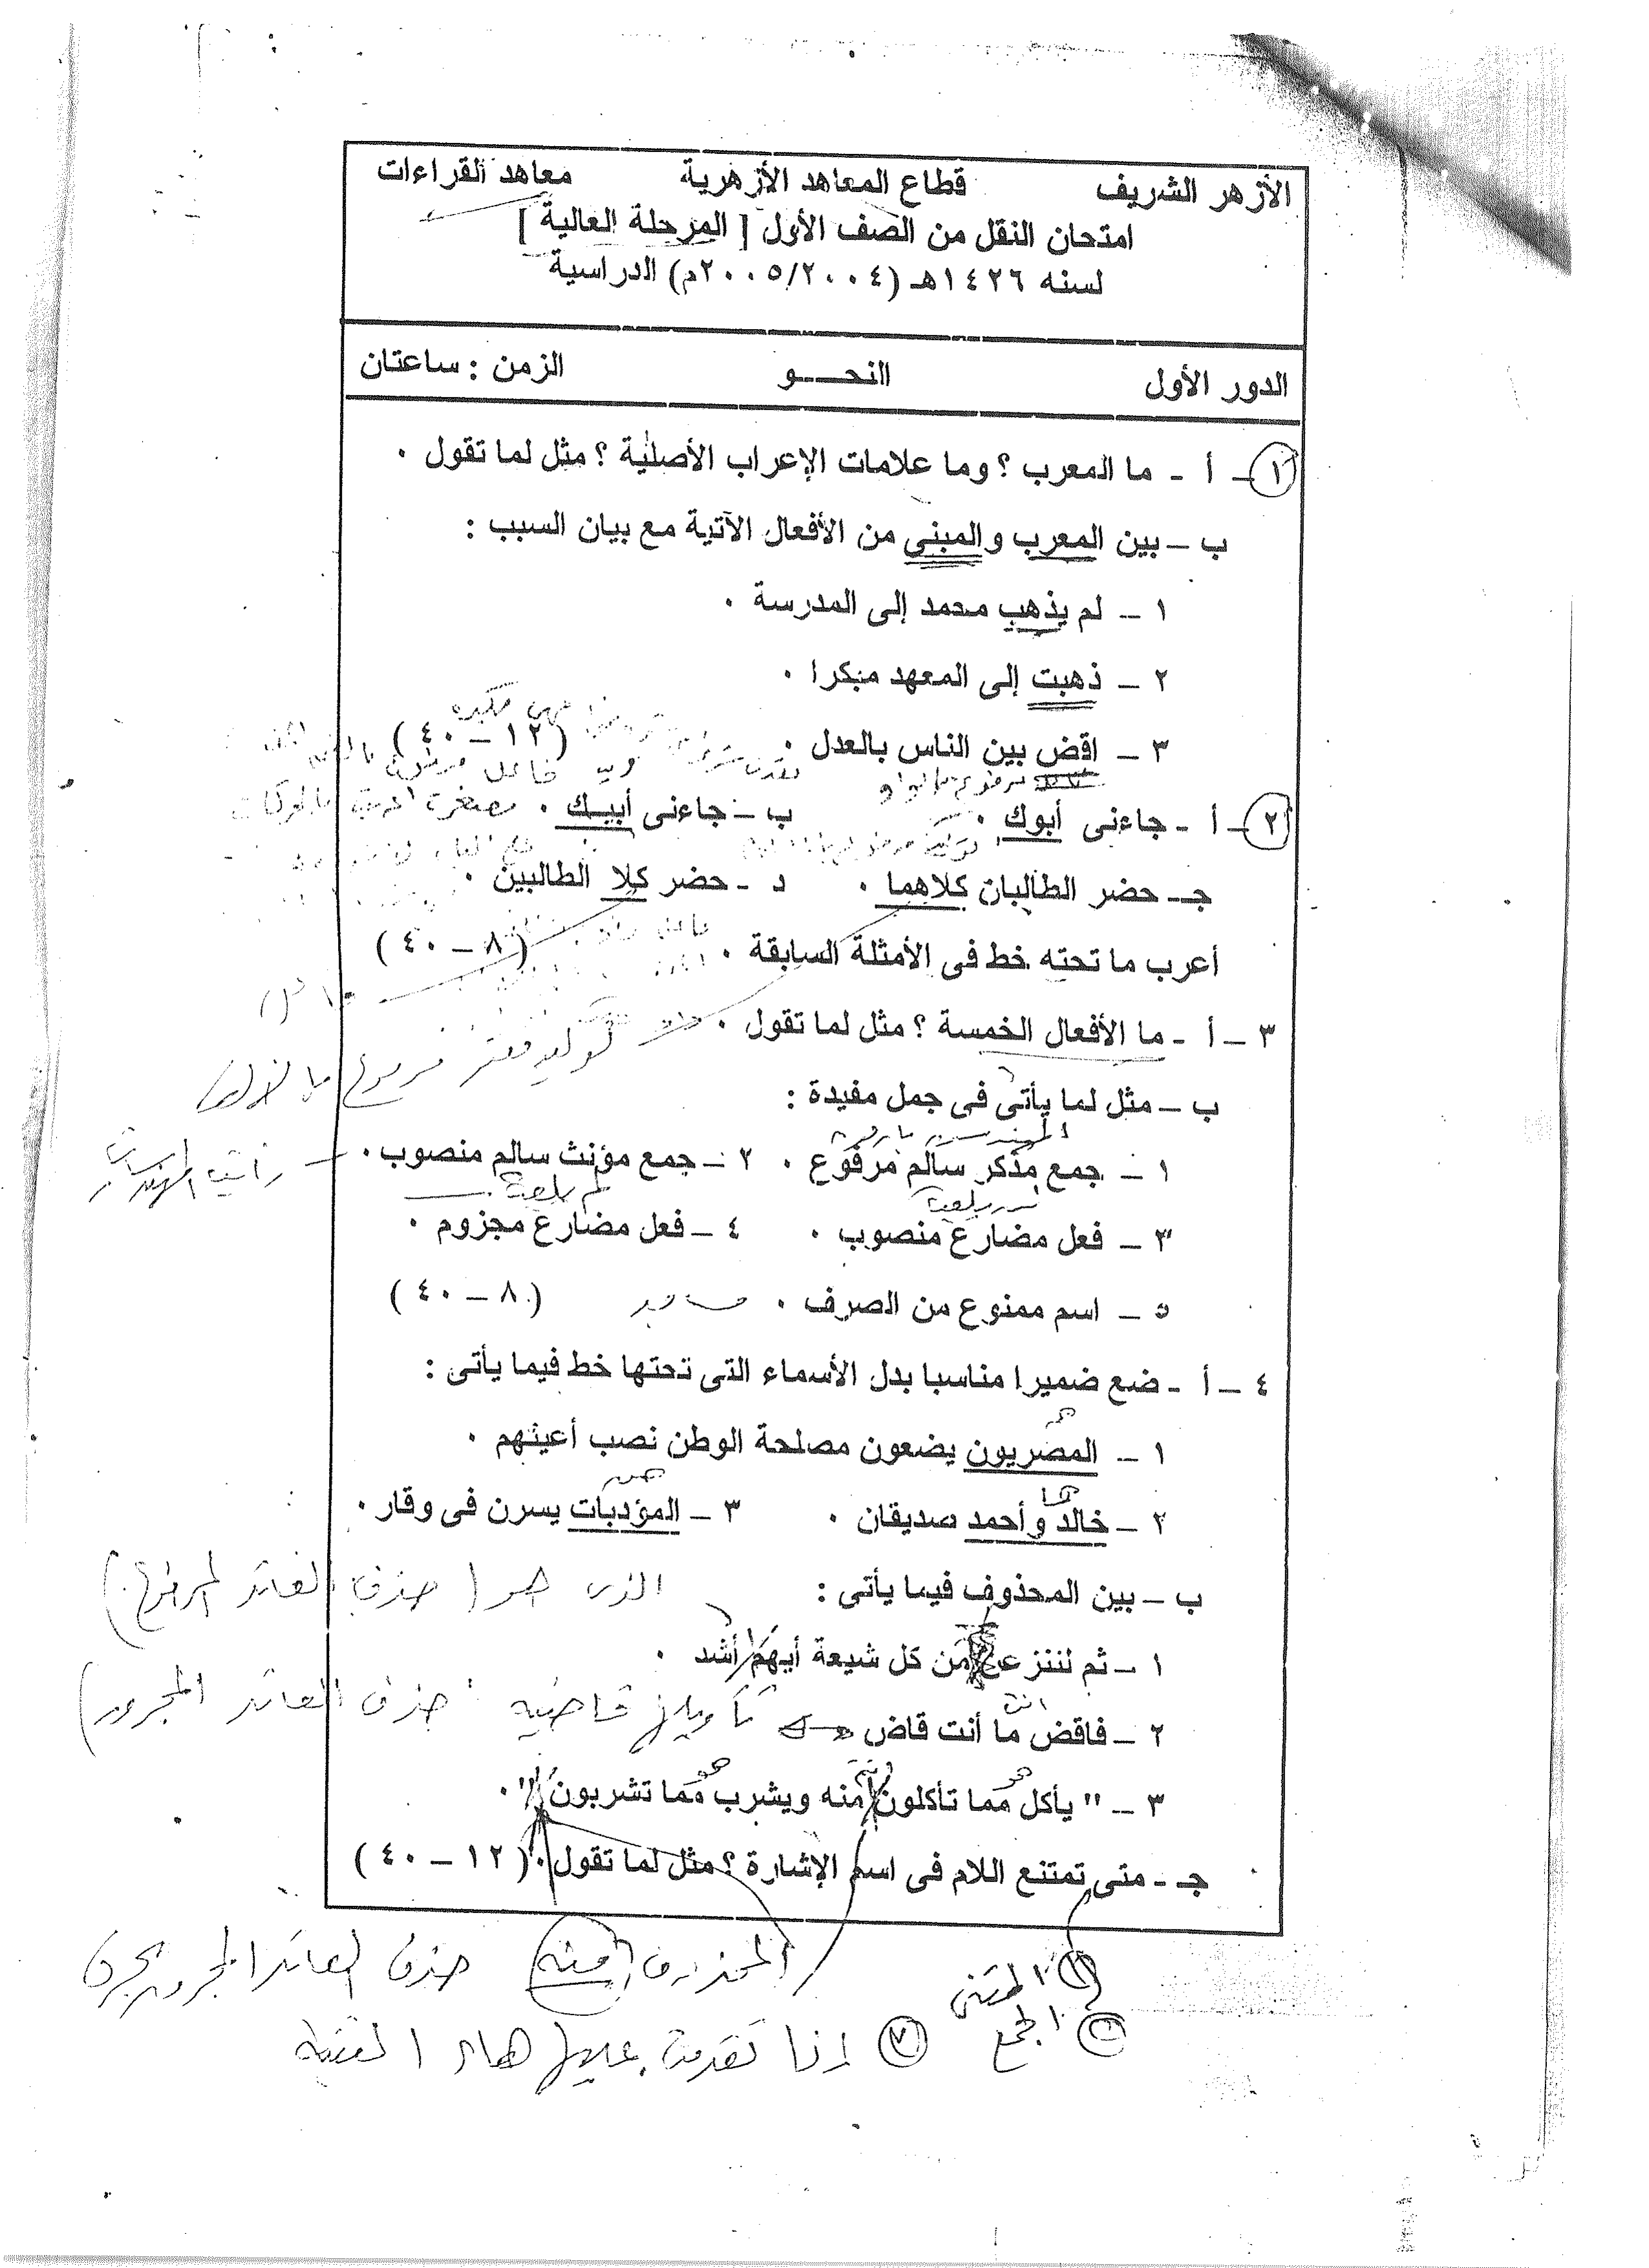 الأزهر الشريف قطاع المعاهد الأزهرية معاهد القراءات
امتحان النقل من الصف الأول [ المرحلة العالية ]
لسنه ١٤٢٦هـ (٢٠٠٥/٢٠٠٤م) الدراسية
الدور الأول النحـــو الزمن : ساعتان
١ – أ - ما المعرب ؟ وما علامات الإعراب الأصلية ؟ مثل لما تقول .
ب – بين المعرب والمبنى من الأفعال الآتية مع بيان السبب :
١ – لم يذهب محمد إلى المدرسة .
٢ – ذهبت إلى المعهد مبكرا .
٣ – اقض بين الناس بالعدل . (١٢ – ٤٠)
مرفوع بالواو
٢ – أ - جاءنى أبوك . ب – جاءنى أبيك .
جـ – حضر الطالبان كلاهما . د - حضر كلا الطالبين .
أعرب ما تحته خط فى الأمثلة السابقة . (٨ – ٤٠)
٣ – أ - ما الأفعال الخمسة ؟ مثل لما تقول .
ب – مثل لما يأتى فى جمل مفيدة :
١ – جمع مذكر سالم مرفوع . ٢ – جمع مؤنث سالم منصوب .
لم يلعب
٣ – فعل مضارع منصوب . ٤ – فعل مضارع مجزوم .
٥ – اسم ممنوع من الصرف . (٨ – ٤٠)
٤ – أ - ضع ضميرا مناسبا بدل الأسماء التى تحتها خط فيما يأتى :
هم
١ – المصريون يضعون مصلحة الوطن نصب أعينهم .
هما هن
٢ – خالد وأحمد صديقان . ٣ – المؤدبات يسرن فى وقار .
ب – بين المحذوف فيما يأتى : الذى هو ( حذف العائد المرفوع )
١ – ثم لننزعن من كل شيعة أيهم أشد .
٢ – فاقض ما أنت قاض تأويلها قاضيه حذف العائد المجرور )
٣ – " يأكل مما تأكلون منه ويشرب مما تشربون " .
جـ - متى تمتنع اللام فى اسم الإشارة ؟ مثل لما تقول . (١٢ – ٤٠)
المحذوف (منه) حذف العائد المجرور بحرف
المثنى
الجمع
إذا تقدمت عليها هاء التنبيه